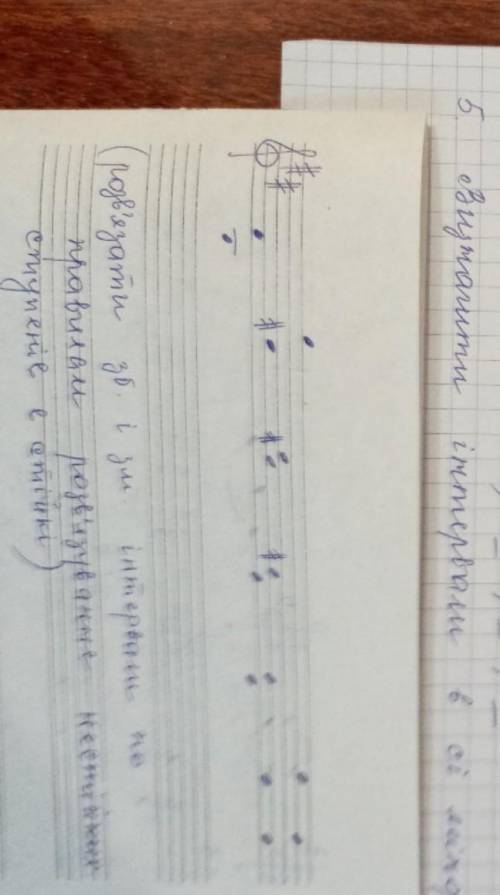 5. Визначити інтервали в сі
(розв'язати зб. і зм. інтервали по
правилам розв'язування нестійких
ступенів в стійкі)